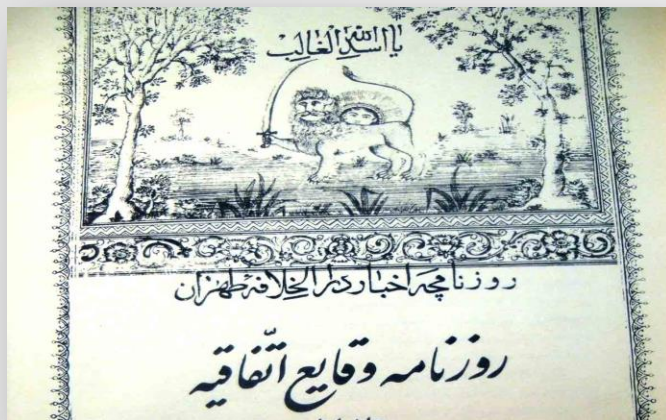 یا اسد الله الغالب
روزنامچه اخبار دار الخلافه طهران
روزنامه وقایع اتّفاقیه